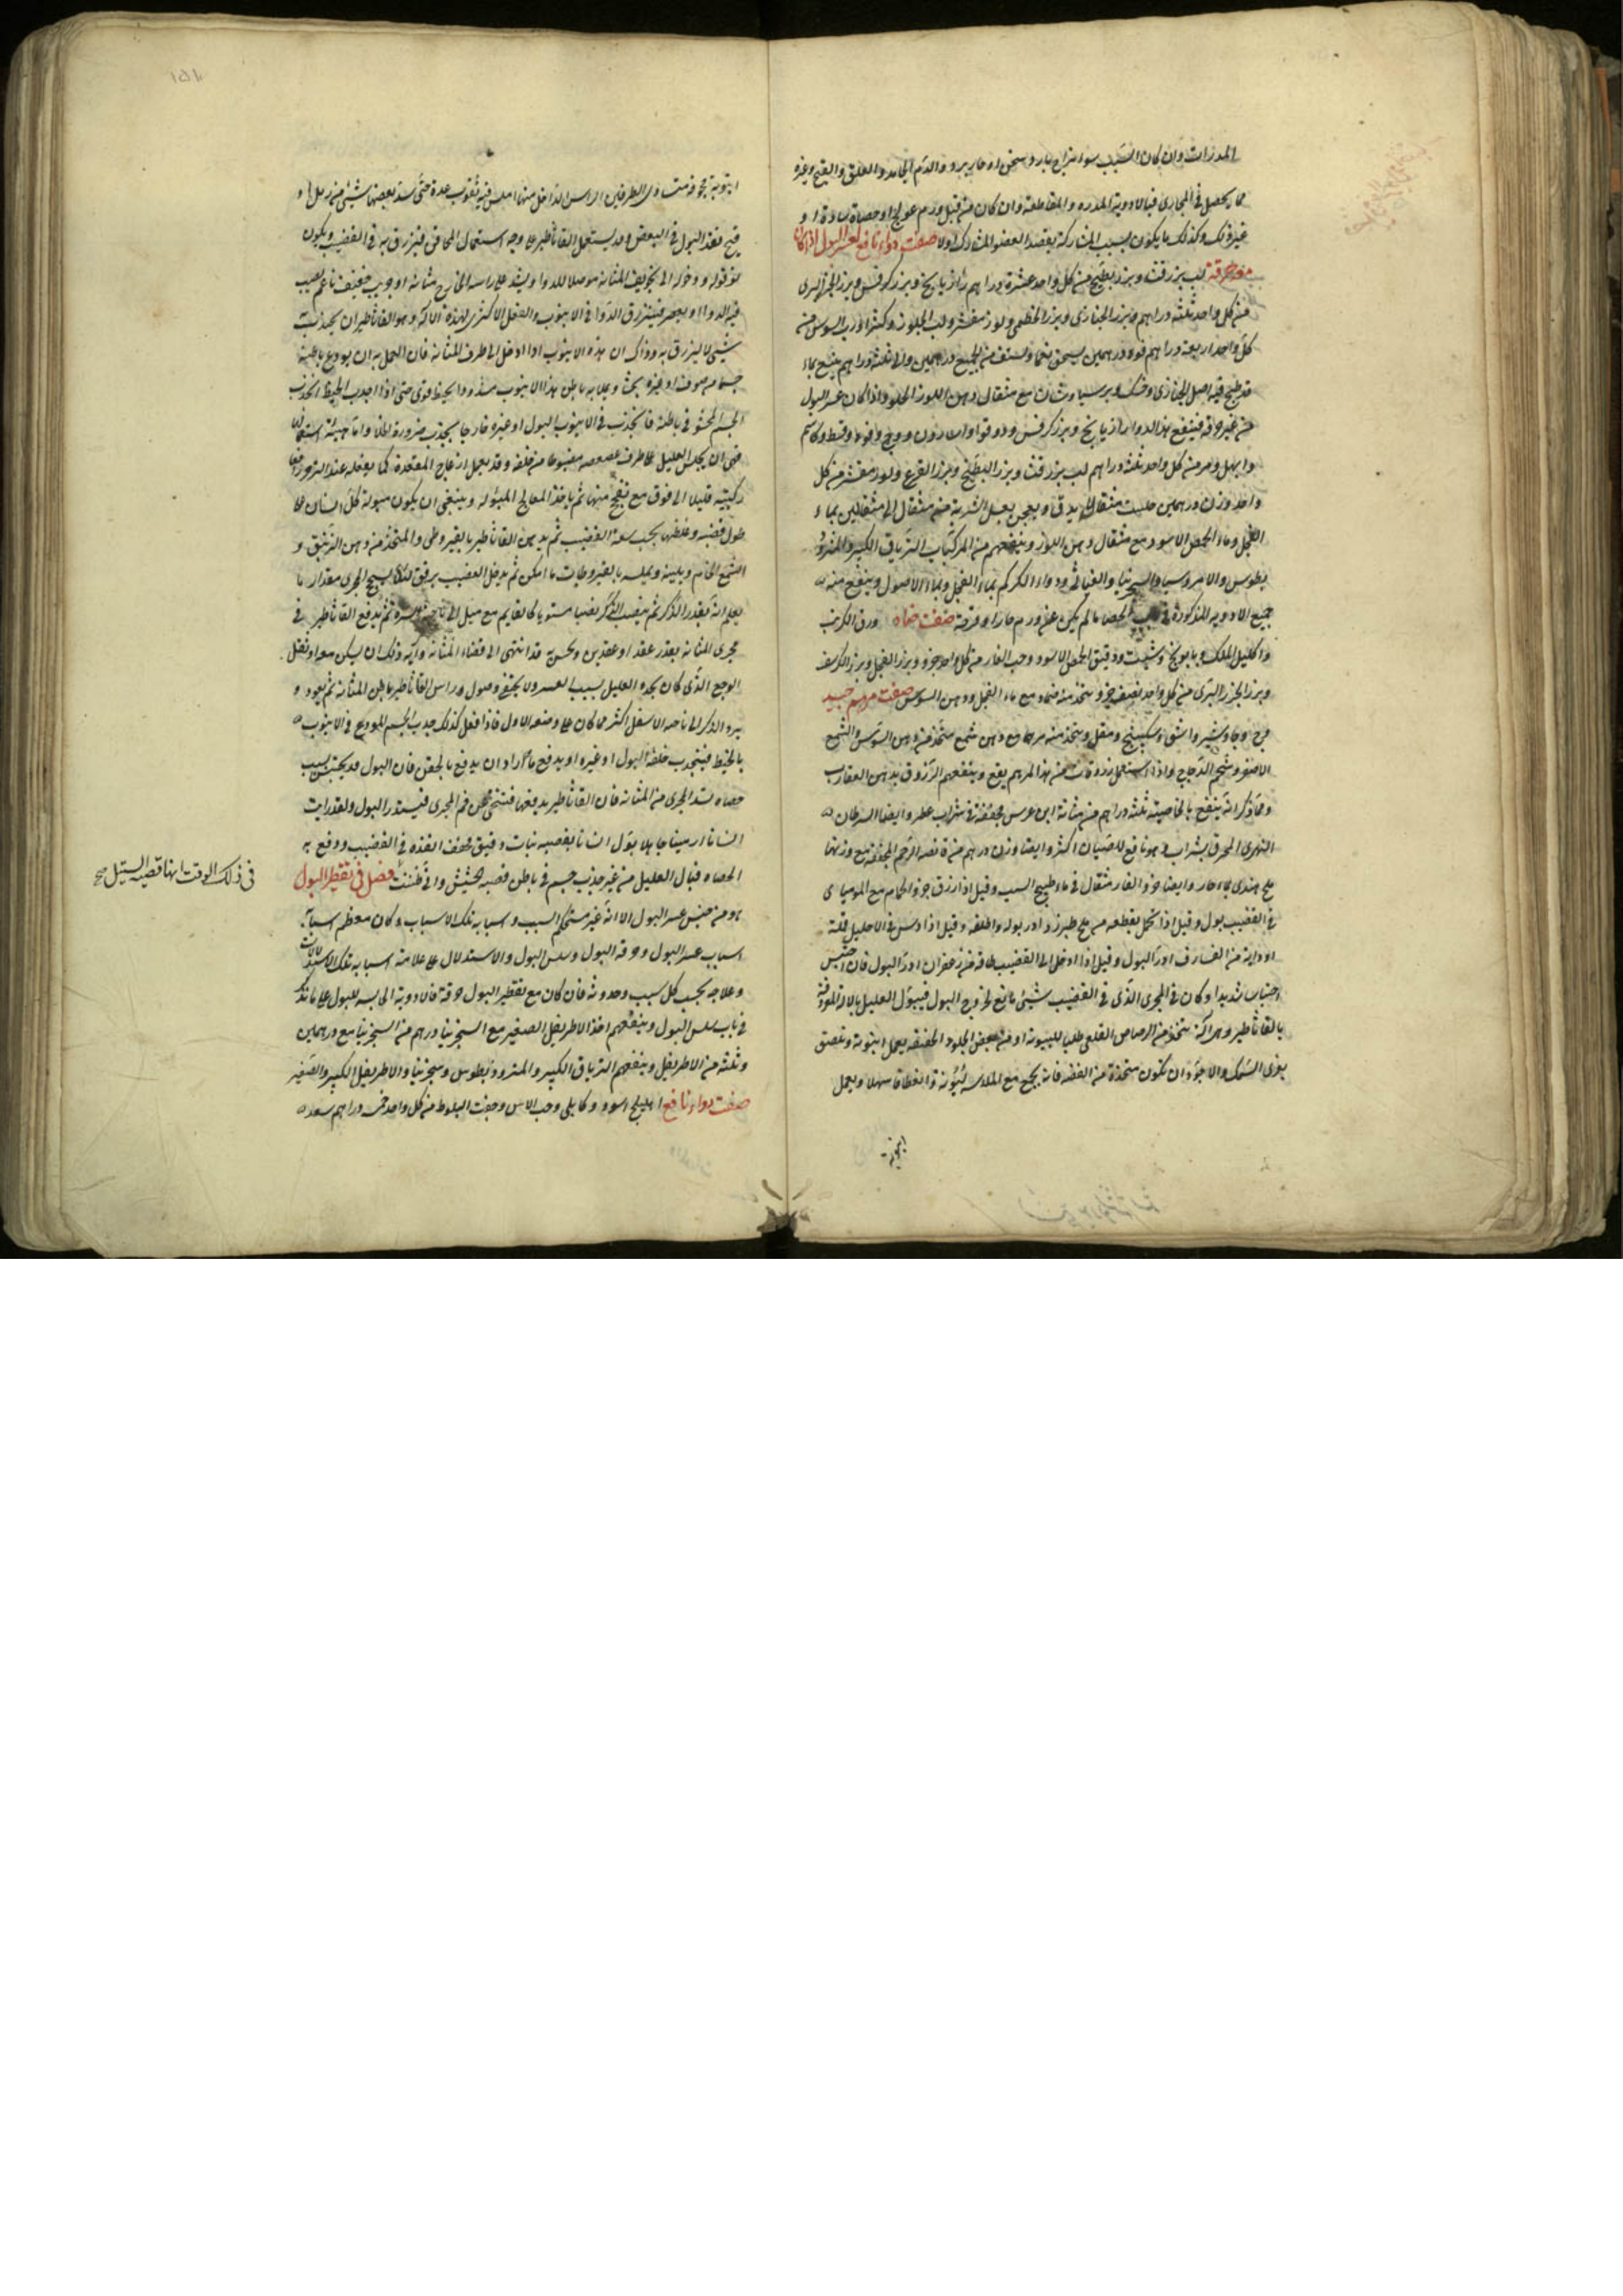 المدرات وان كان السبب سوء مزاج بارد وسخن او حار برد والدم الجامد والعلق والقيح وغيره
مما يحصل في المجارى فبالادوية المدره والمقطعة وان كان من قبل ورم عولج او حصاة او
غير ذلك وكذلك ما يكون بسبب المشاركة يقصد العضو المشارك اولا صفت دواء نافع لعسر البول اذا كان
مع حرقة لب بزر قثا وبزر بطيخ من كل واحد عشرة دراهم رازيانج وبزر كرفس وبزر الجزر البرى
من كل واحد ثلثة دراهم بزر الخبازى وبزر الخطمى ولوز مقشر ولب الجلوز وكثيرا ورب السوس من
كل واحد اربعة دراهم فوه درهمين يسحق نعما ويستف من الجميع درهمين والى ثلثة دراهم بماء
قد طبخ فيه اصل الخبازى وخسك وبرسياوشان مع مثقال دهن اللوز الحلو واذا كان عسر البول
من غير حرقة فينفع هذا الدوا رازيانج وبزر كرفس ودوقوا واسارون ووج وفوه وقسط وكاشم
وابهل ومر من كل واحد ثلثة دراهم لب بزر قثا وبزر البطيخ وبزر القرع ولوز مقشر من كل
واحد وزن درهمين حلتيت مثقال يدق ويعجن بعسل الشربة منه مثقال الى مثقالين بماء
الفجل وماء الحمص الاسود مع مثقال دهن اللوز وينفعهم من المركبات الترياق الكبير والمثرو
ديطوس والامروسيا والسجزنيا ودواء الكركم بماء الفجل وبماء الاصول وينفع منه
جميع الادويه المذكورة في الحصا ما لم يكن عن ورم حار او قرحة صفت ضماد ورق الكرنب
واكليل الملك وبابونج وشبت ودقيق الحمص الاسود وحب الغار من كل واحد جزو وبزر الفجل وبزر الكرفس
وبزر الجزر البرى من كل واحد نصف جزو يتخذ منه ضماد مع ماء الفجل ودهن السوسن صفت مرهم جيد
وجاوشير واشق وسكبينج ومقل ويتخذ منه مرهما مع دهن شمع متخذ من دهن السوسن والشمع
الاصفر وشحم الدجاج واذا استعمل من هذا المرهم يقع وينفعهم الزروق بدهن العقارب
ومما ذكر انه ينفع بالخاصية ثلثة دراهم من مثانة ابن عرس مجففة في شراب عطر وايضا السرطان
النهرى المحرق بشراب وهو نافع للصبيان اكثر وايضا وزن درهم من قانصة الرخم المجففة مع وزنها
ملح هندى بماء حار وايضا خرو الفار مثقال في ماء طبيخ السبت وقيل اذا زرق خرو الحمام مع الموميا
في القضيب بول وقيل اذا تحمل بقطعه من ملح طبرزد ادر بوله واطلقه وقيل اذا دس في الاحليل قملة
او دابة من الفسارف ادر البول وقيل اذا ادخل الى القضيب طاقة من زعفران ادر البول فان احتبس
احتباسا شديدا وكان في المجرى الذى في القضيب شيئ مانع لخروج البول فيبول العليل بالالة المعروفة
بالقاثاطير وهى آلة يتخذ من الرصاص القلعى طلبا للينوته او من بعض الجلود الخفيفة يعمل انبوبة وتلصق
بغرى السمك والاجود ان تكون متخذة من الفضة فانه يجمع مع الملاسة لينونة وانعطافا سهلا ويعمل
انبوبة مجوفة متساوى الطرفين الراس الداخل منها املس فيه ثقوب عدة حتى سد بعضها شيئ من رمل او
قيح نفذ البول في البعض وقد يستعمل القاثاطير على وجه استعمال المحاقن فيزرق به في القضيب ويكون
لنفوذه ودخوله الى تجويف المثانة موصلا للدواء ويشد على راسه الخارج مثانة او جريب خفيف ناعم يصب
فيه الدوا ويعصر فينزرق الدوا في الانبوب والعمل الاكثرى لهذه الالة وهو القاثاطير ان يجذب به
شيئ لا ليزرق به وذاك ان هذه الانبوب اذا ادخل الى طرف المثانة فان العمل به ان يودع باطنه
جسما من صوف او غيره بحيث ويملا به باطن هذا الانبوب مشدودا بخيط قوى حتى اذا اجذب الخيط انجذب
الجسم المحشو في باطنه فانجذب في الانبوب البول او غيره خارجا بجذب ضرورة الخلا واما هيئة استعماله
فهى ان يجلس العليل على طرف عصعصه مضبوطا من خلفه وقد يعمل ازعاج المقعدة كما يفعله عند التزحر رافعا
ركبتيه قليلا الى فوق مع تفحج منها ثم ياخذ المعالج المبوله وينبغى ان يكون مبولة كل انسان على
طول قضيبه وغلظها بحسب سعة القضيب ثم يدهن القاثاطير بالقيروطى والمتخذ من دهن الزنبق و
الشمع الخام ويلينه ويملسه بالقيروطيات ما امكن ثم يدخل القضيب برفق لئلا يسحج المجرى مقدار ما
يعلم انه بقدر الذكر ثم ينصب الذكر نصبا مستويا كالقايم مع ميل الى ناحية السرة ثم يدفع القاثاطير في
مجرى المثانة بقدر عقد او عقدين ويحس به قد انتهى الى فضاء المثانة وآية ذلك ان يسكن معه او تقل
الوجع الذى كان يجده العليل بسبب العسر ولا يخفى وصول راس القاثاطير باطن المثانة ثم يعود و
يرد الذكر الى ناحية الاسفل اكثر مما كان على وضعه الاول فاذا فعل كذلك جذب الجسم المودع في الانبوب
بالخيط فينجذب خلفه البول او غيره او يدفع ما اراد ان يدفع بالحقن فان البول قد يحتبس بسبب
حصاة تسد المجرى من المثانة فان القاثاطير يدفعها فتتنحى عن فم المجرى فيستدر البول ولقد رايت
انسانا ارمينيا جاهلا بول انسانا بقصبه نبات دقيق مجفف انفذه في القضيب ودفع به
الحصاه فبال العليل من غير جذب جسم في باطن قصبه الحشيش وانى ظننت فصل في تقطير البول
هو من جنس عسر البول الا انه غير مستحكم السبب واسبابه تلك الاسباب وكان معظم اسبابه
اسباب عسر البول وحرقة البول وسلس البول والاستدلال على علامته اسبابه تلك الاستدلالات
وعلاجه بحسب كل سبب وحدوثه فان كان مع تقطير البول حرقة فالادوية الحابسه للبول على ما نذكر
في باب سلس البول وينفعهم اخذ الاطريفل الصغير مع السجزنيا درهم من السجزنيا مع درهمين
وثلثة من الاطريفل وينفعهم الترياق الكبير والمثروديطوس وسجزنيا والاطريفل الكبير والصغير
صفت دواء نافع اهليلج اسود وكابلى وحب الاس وجفت البلوط من كل واحد خمسة دراهم سعد
في ذلك الوقت انها قصبه السيل صح